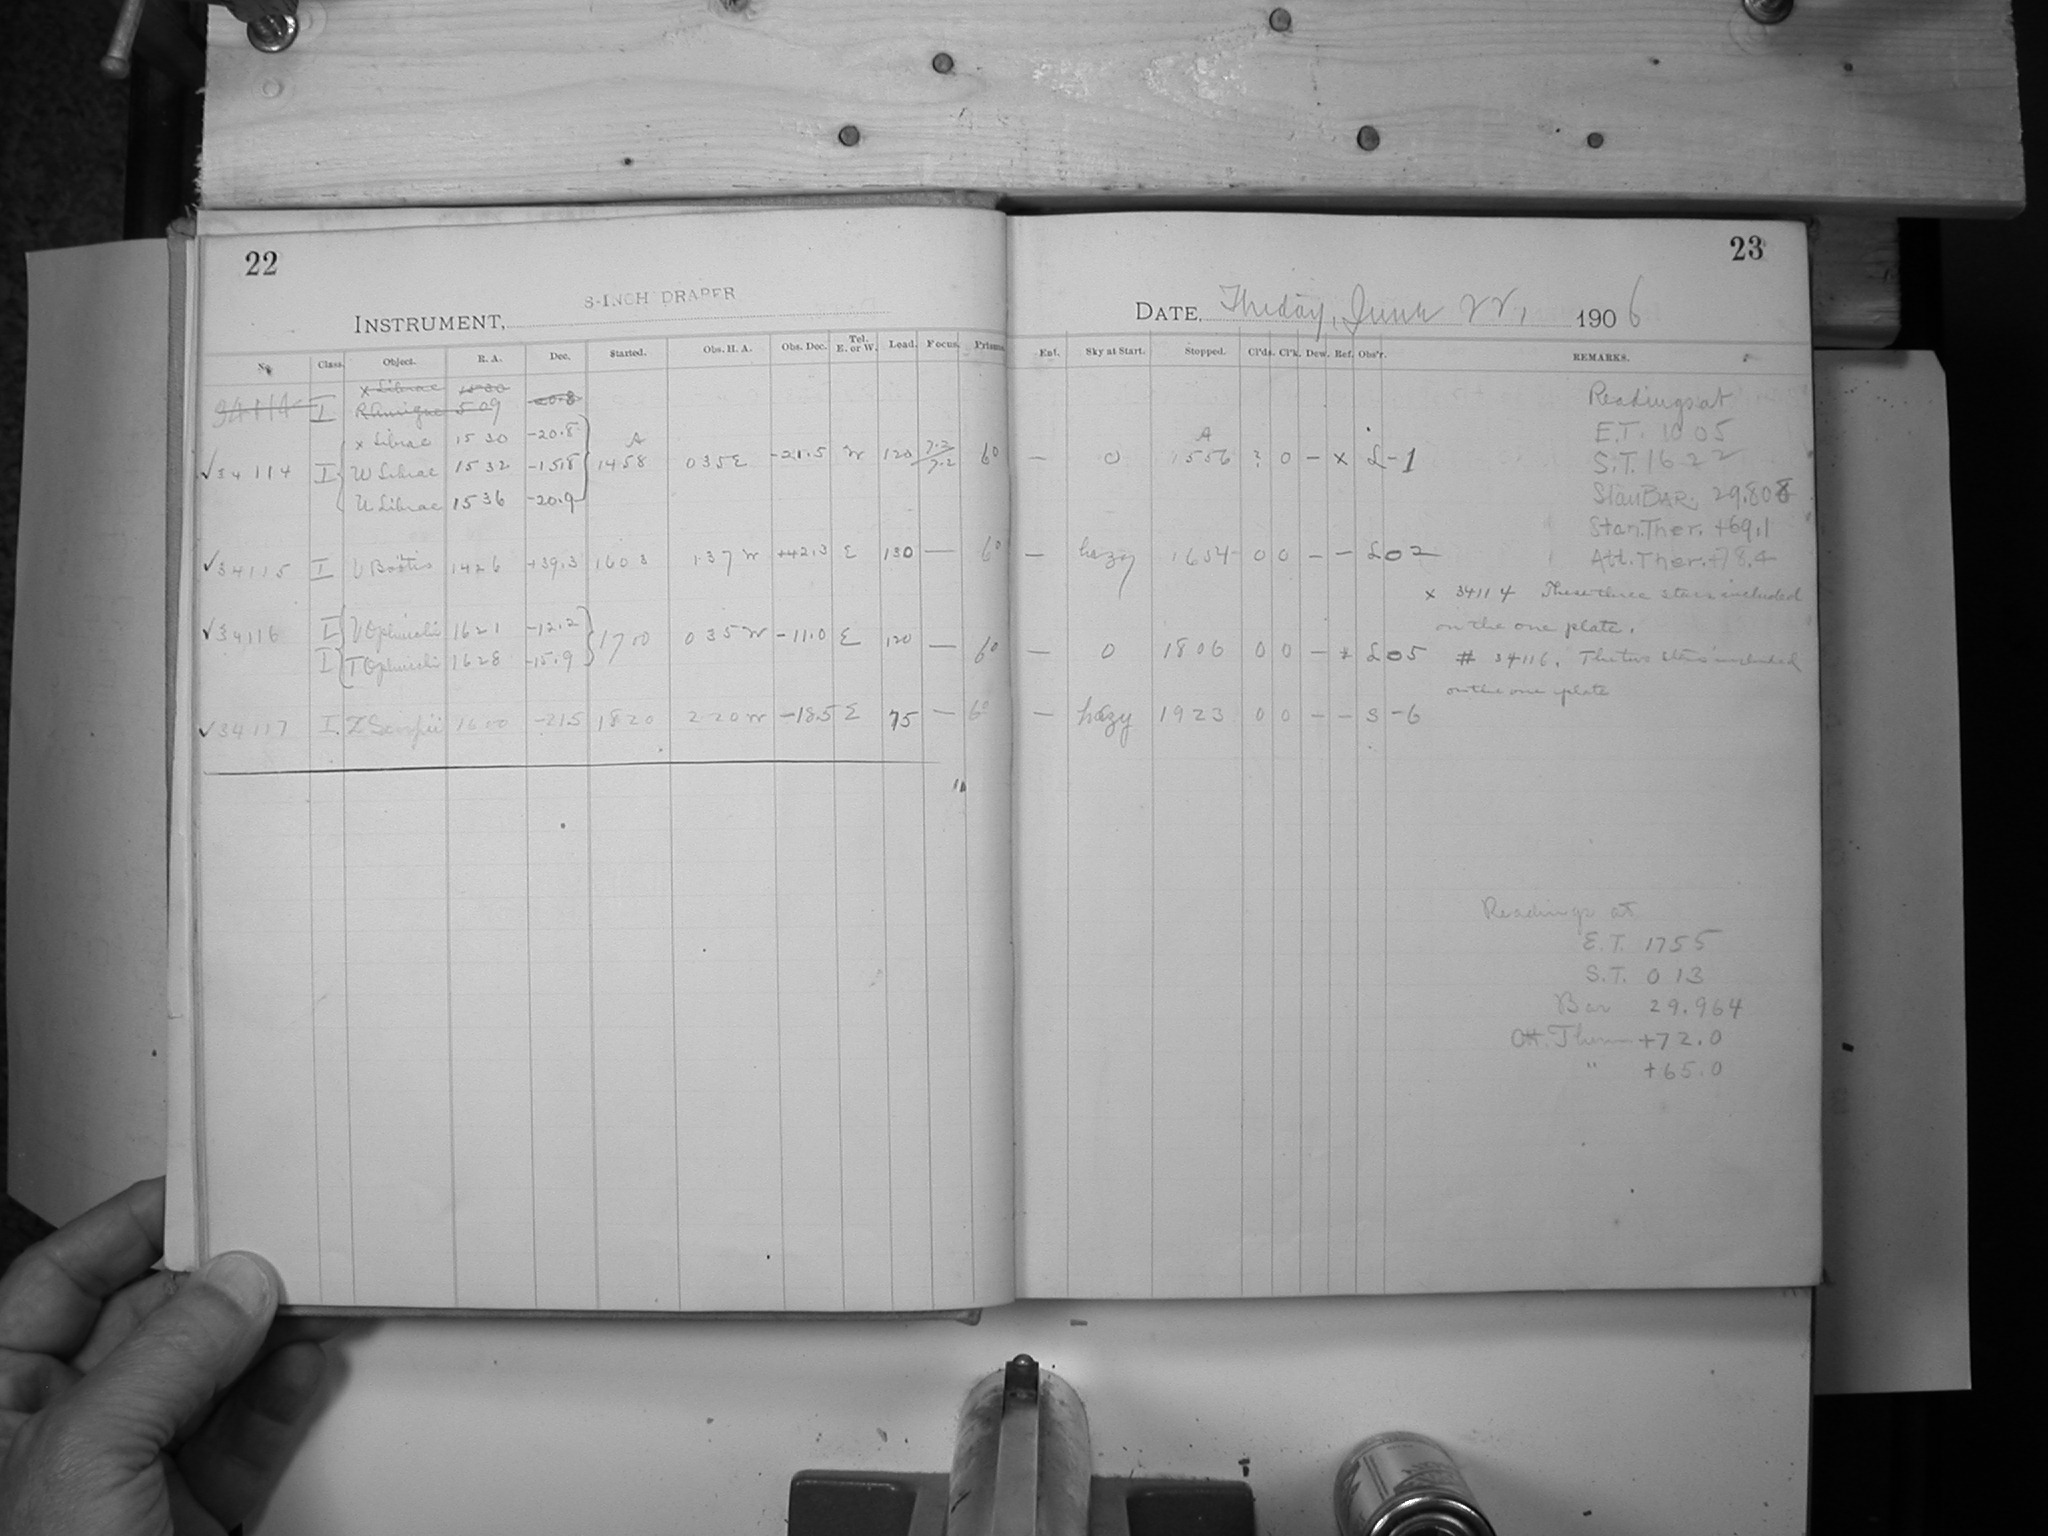 22
8-INCH DRAPER
INSTRUMENT,
No. Class. Object. R. A. Dec. Started. Obs. H. A. Obs. Dec. Tel. E. or W. Load. Focus. Prisms.
x Librae 15 30 -20.8
34114 I R Aurigae 5 09
x Librae 15 30 -20.8
✓34114 I W Librae 15 32 -15.8 A 1458 0 35 E -21.5 W 120 7.2/7.2 6°
U Librae 15 36 -20.9
✓34115 I V Boötis 1426 +39.3 1603 1 37 W +42.3 E 130 — 6°
✓34116 I V Ophiuchi 1621 -12.2 1700 0 35 W -11.0 E 120 — 6°
I T Ophiuchi 1628 -15.9
✓34117 I Z Scorpii 1600 -21.5 1820 2 20 W -18.5 E 75 — 6°
23
DATE, June 22, 1906
Enf. Sky at Start. Stopped. Cl'ds. Cl'k. Dew. Ref. Obs'r. REMARKS.
— 0 A 1556 ? 0 — x L-1
— hazy 1654 0 0 — — L02
— 0 1806 0 0 — * L05
— hazy 1923 0 0 — — S-6
Readings at
E.T. 10 05
S.T. 16 22
Stan BAR. 29.808
Stan.Ther. +69.1
Att.Ther. +78.4
x 34114 These three stars included
on the one plate.
# 34116. The two stars included
on the one plate
Readings at
E.T. 1755
S.T. 0 13
Bar 29.964
Att. Therm +72.0
" +65.0